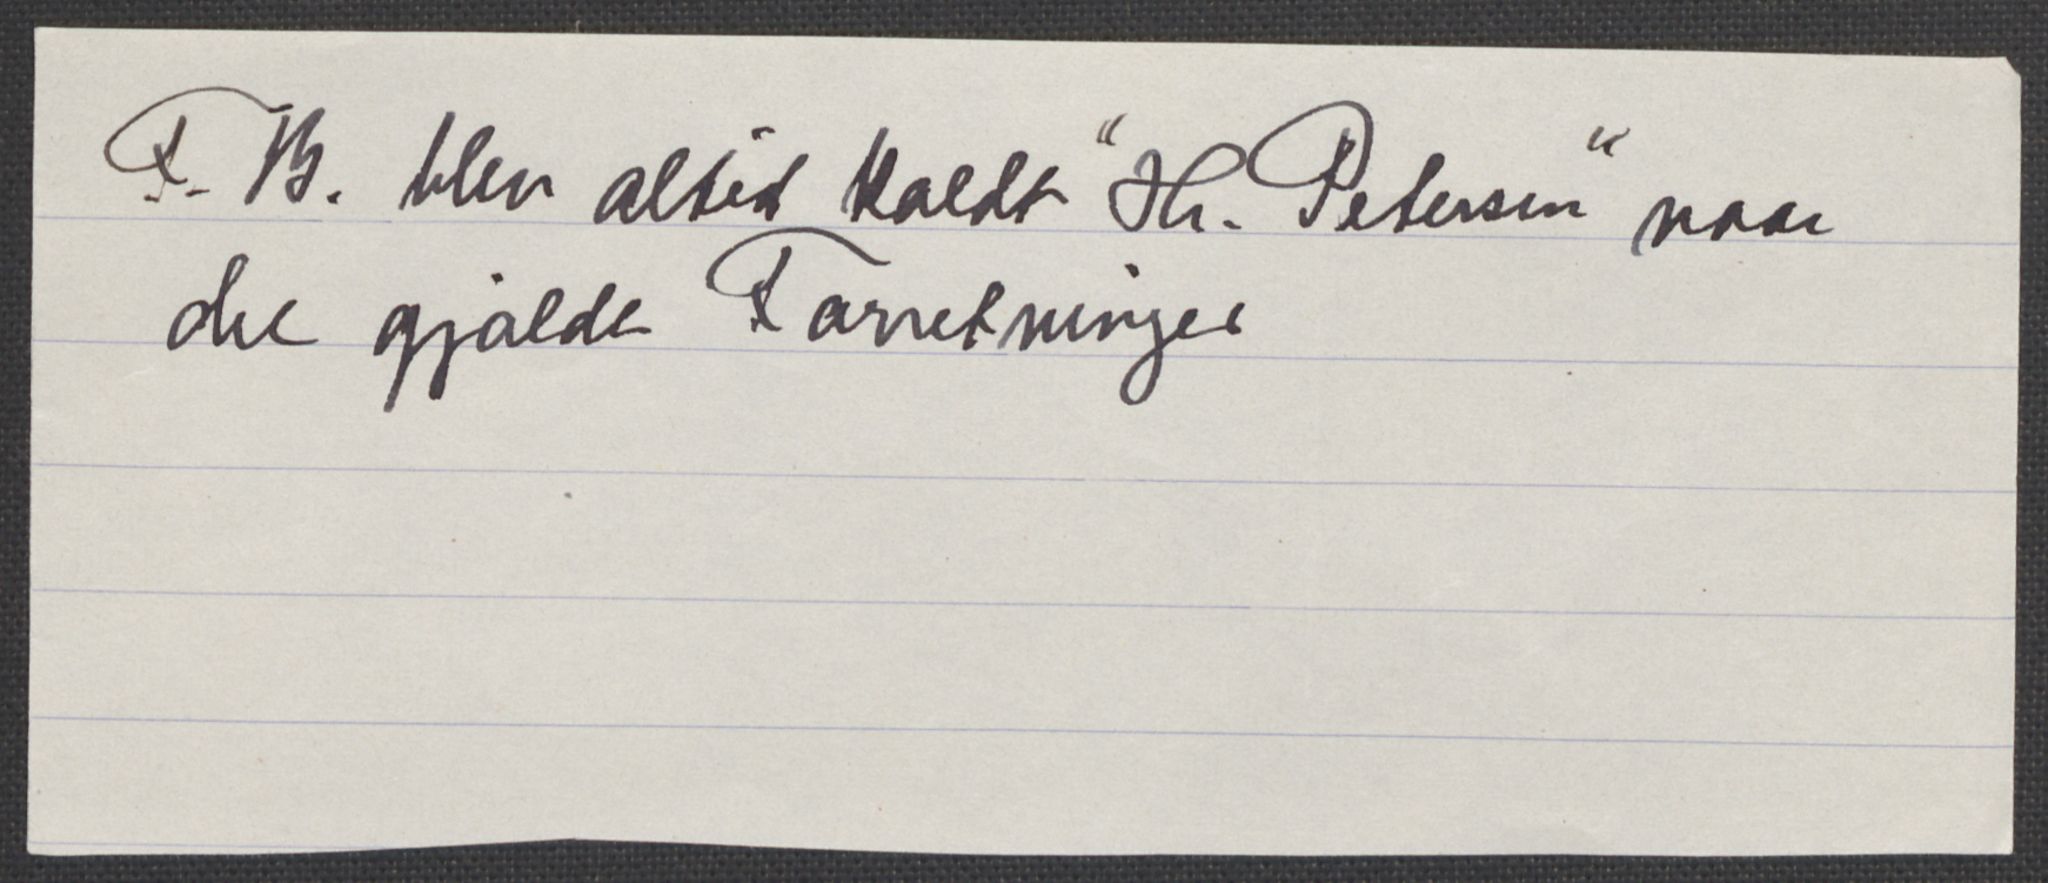 F. B. blev altid kaldt "Hr. Petersen" naar
det gjaldt Forretninger